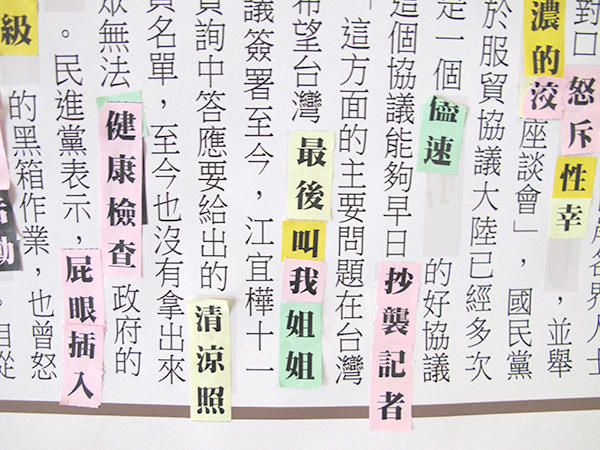 岸各界人士
對口怒斥性幸，並舉
濃的洨座談會」，國民黨
於服貿協議大陸已經多次
定一個儘速的好協議
這個協議能夠早日抄襲記者
「這方面的主要問題在台灣
希望台灣最後叫我姐姐
議簽署至今，江宜樺十一
質詢中答應要給出的清涼照
員名單，至今也沒有拿出來
眾無法健康檢查政府的
。民進黨表示，屁眼插入
級的黑箱作業，也曾怒
動。自從